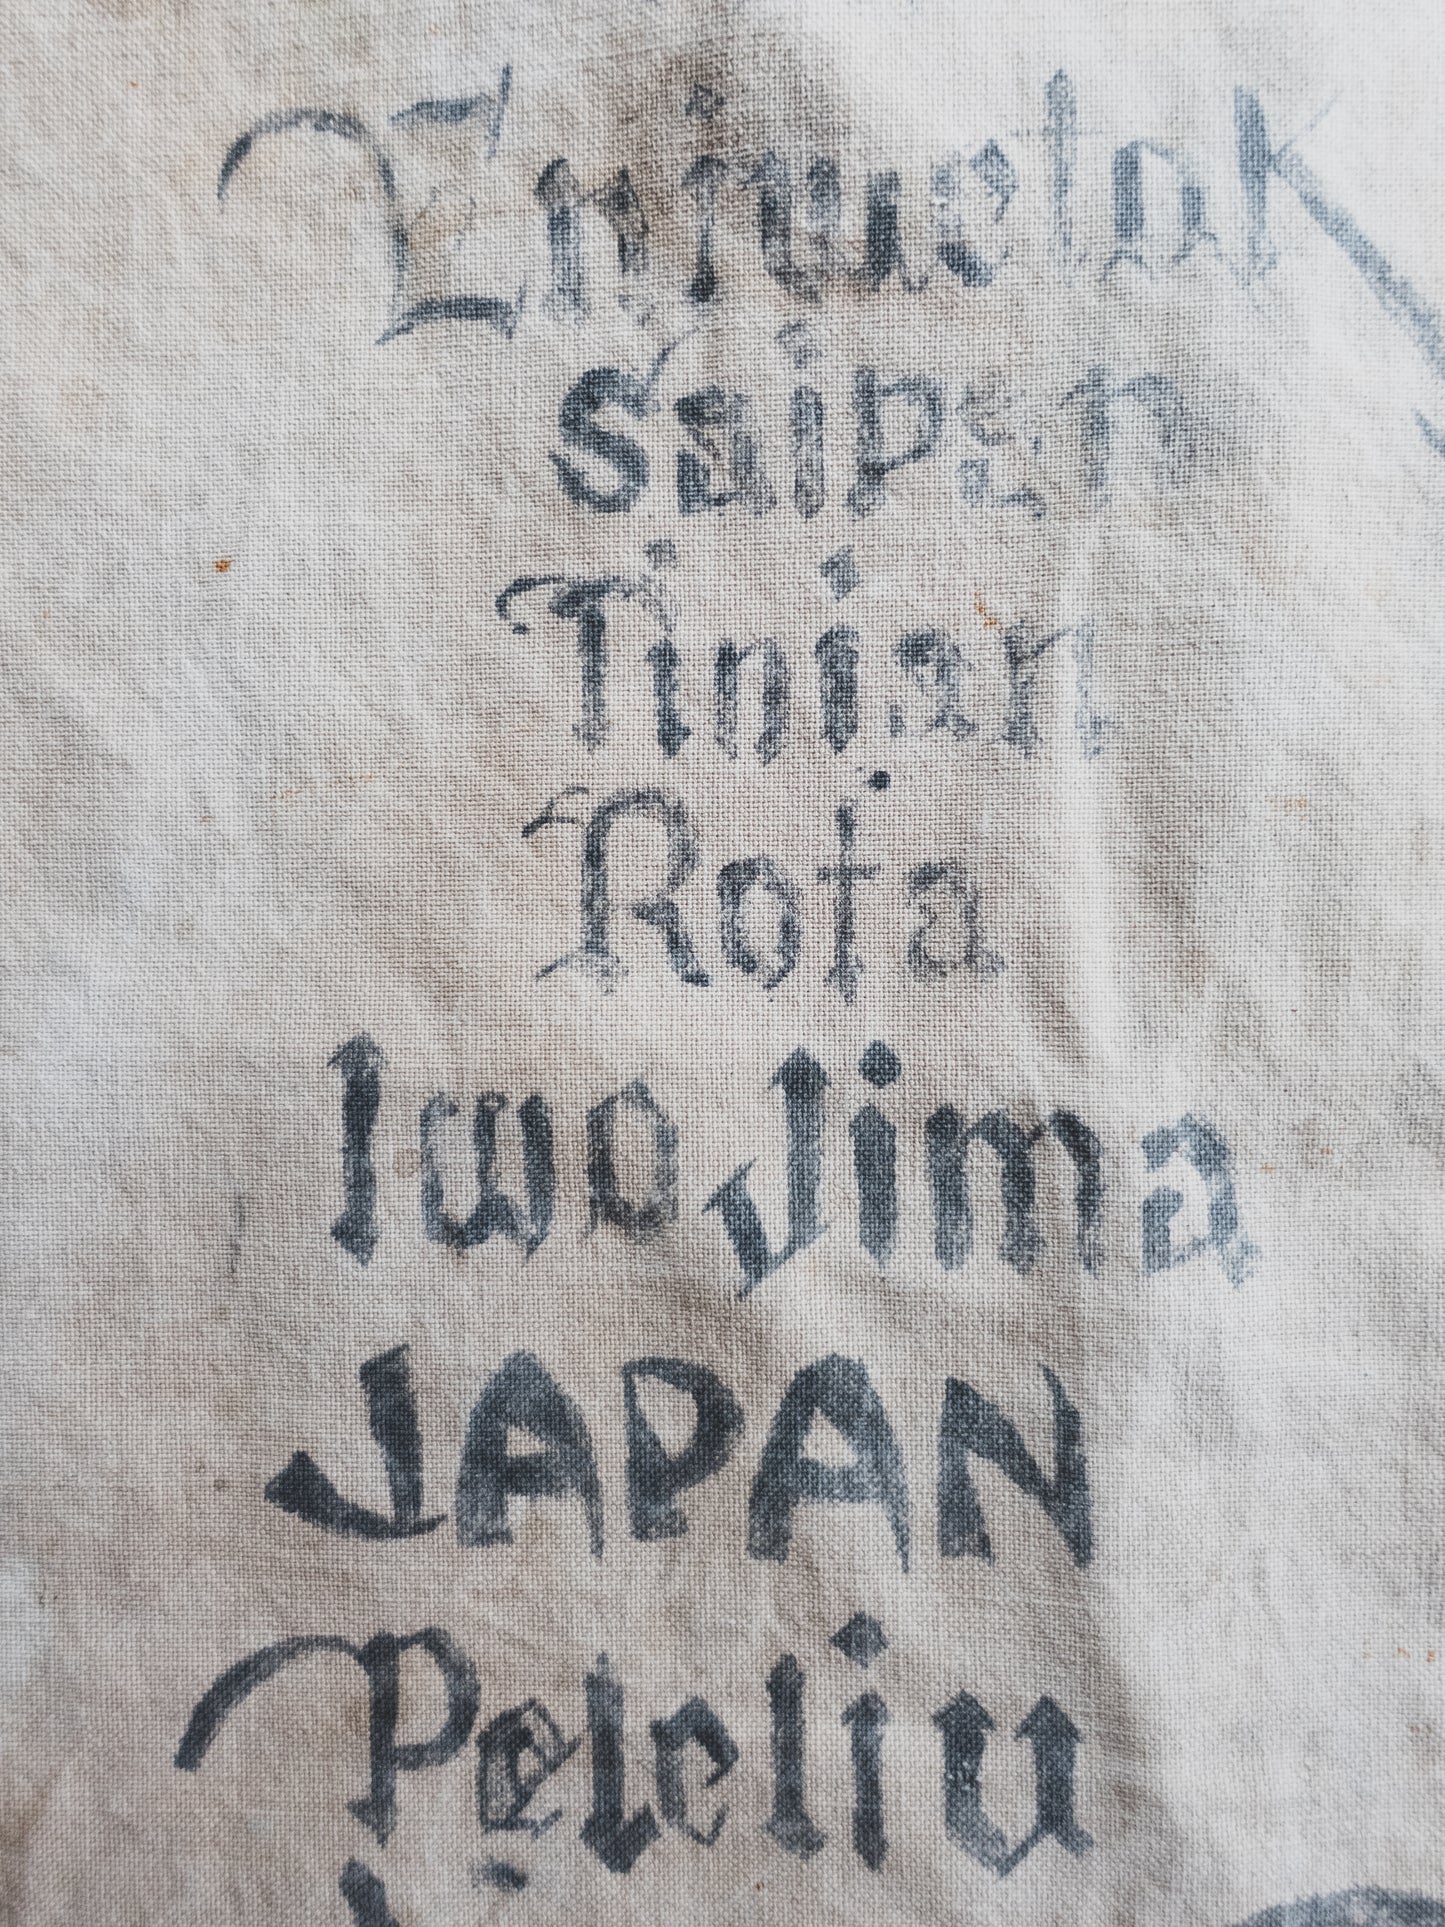 Eniwetok
Saipan
Tinian
Rota
Iwo Jima
JAPAN
Peleliu